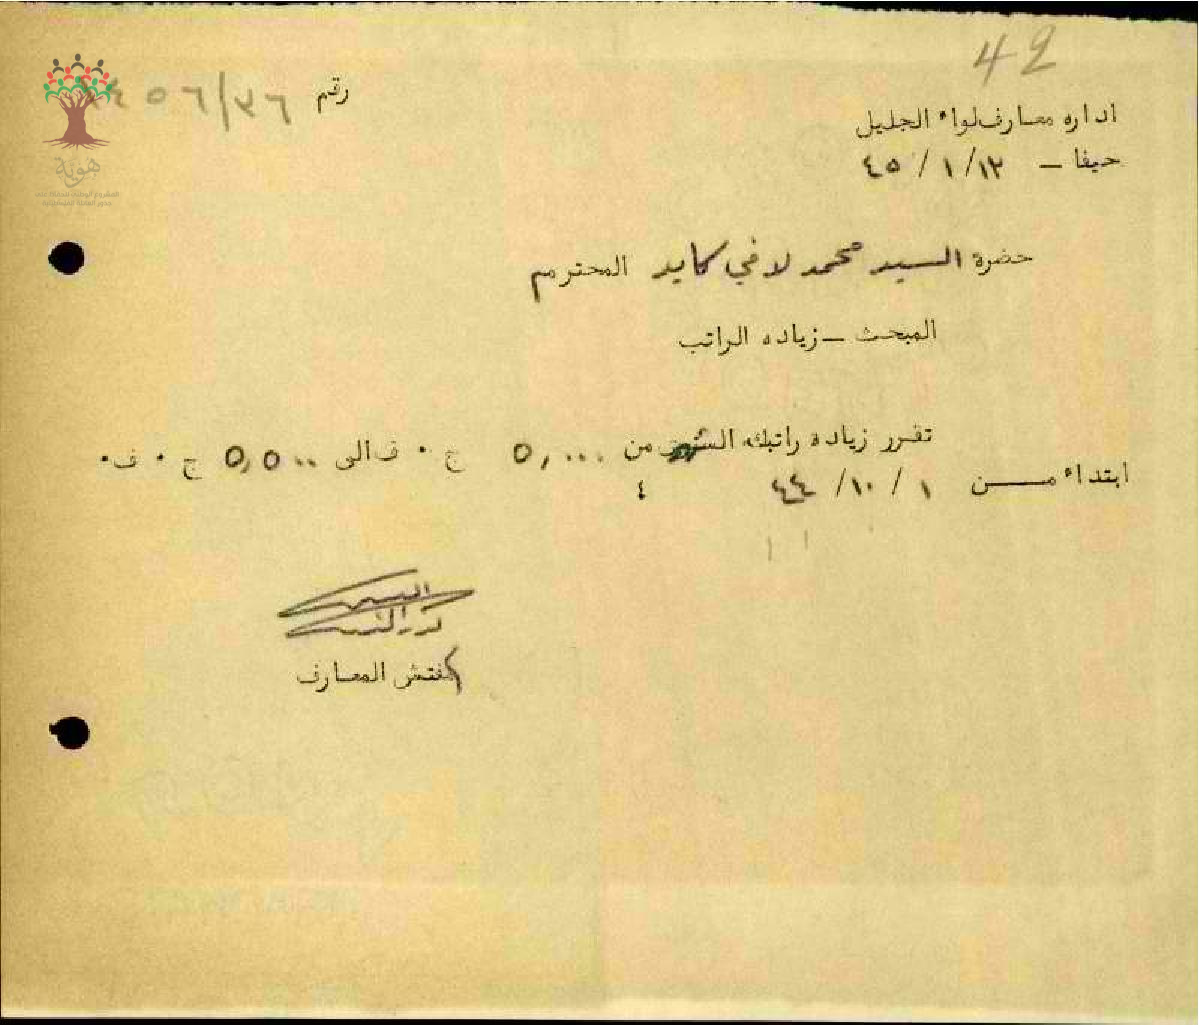 42
رقم ٣٦/٤٥٦
اداره معارف لواء الجليل
حيفا – ١٢/١/٤٥
حضرة السيد محمد لافي كايد المحترم
المبحث – زياده الراتب
تقرر زياده راتبك من ٥,٠٠٠ ج ٠ ف الى ٥,٥٠٠ ج ٠ ف٠
ابتداء من ١ / ١٠/ ٤٤
٤
مفتش المعارف
هوية